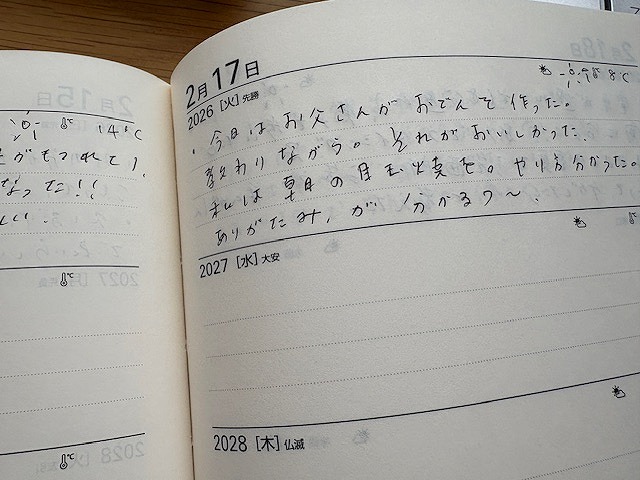 14℃
なった!!
2月17日
2026 [火] 先勝
8℃
・今日はお父さんがおでんを作った。
教わりながら。それがおいしかった。
私は草日の目玉焼きを。やり方分かった。
ありがたみ,が 分かるワ〜.
2027 [水] 大安
2028 [木] 仏滅